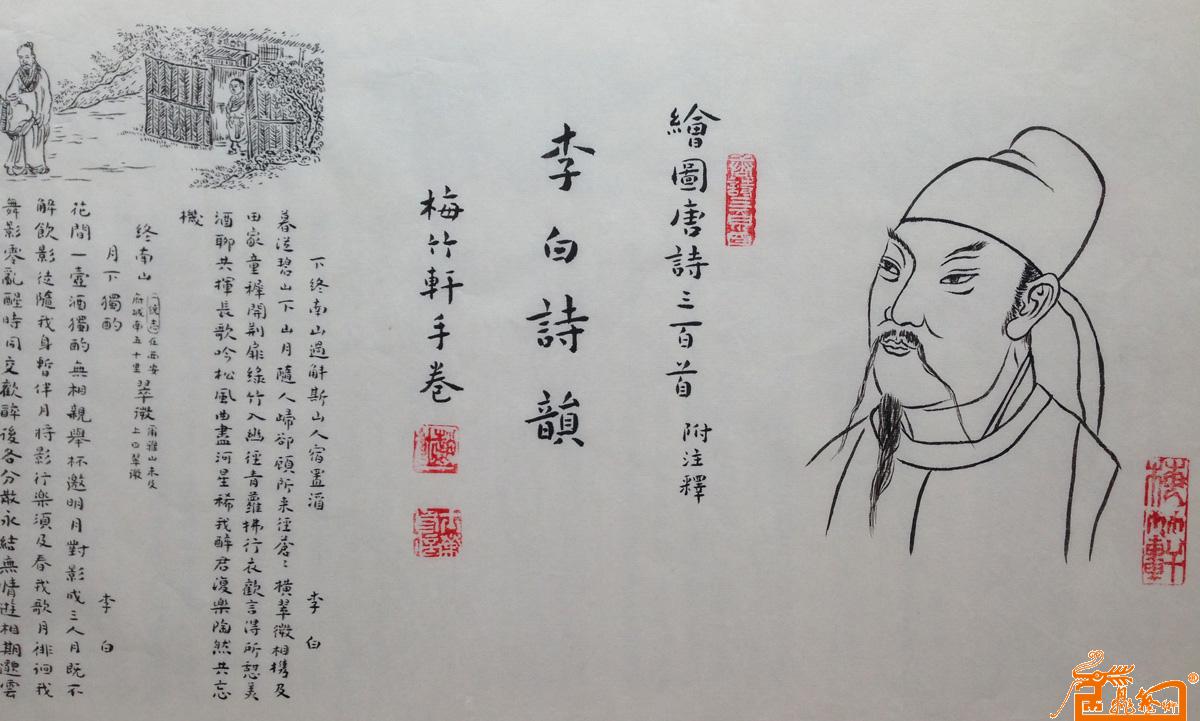 梅竹軒
繪圖唐詩三百首 附注釋
李白詩韻
梅竹軒手卷
下終南山過斛斯山人宿置酒 李白
暮從碧山下山月隨人歸卻顧所來徑蒼〻橫翠微相攜及
田家童穉開荆扉綠竹入幽徑青蘿拂行衣歡言得所憩美
酒聊共揮長歌吟松風曲盡河星稀我醉君復樂陶然共忘
機
終南山 一統志在西安府城南五十里 翠微 爾雅山未及上曰翠微
月下獨酌 李白
花間一壺酒獨酌無相親舉杯邀明月對影成三人月既不
解飲影徒隨我身暫伴月將影行樂須及春我歌月徘徊我
舞影零亂醒時同交歡醉後各分散永結無情遊相期邈雲